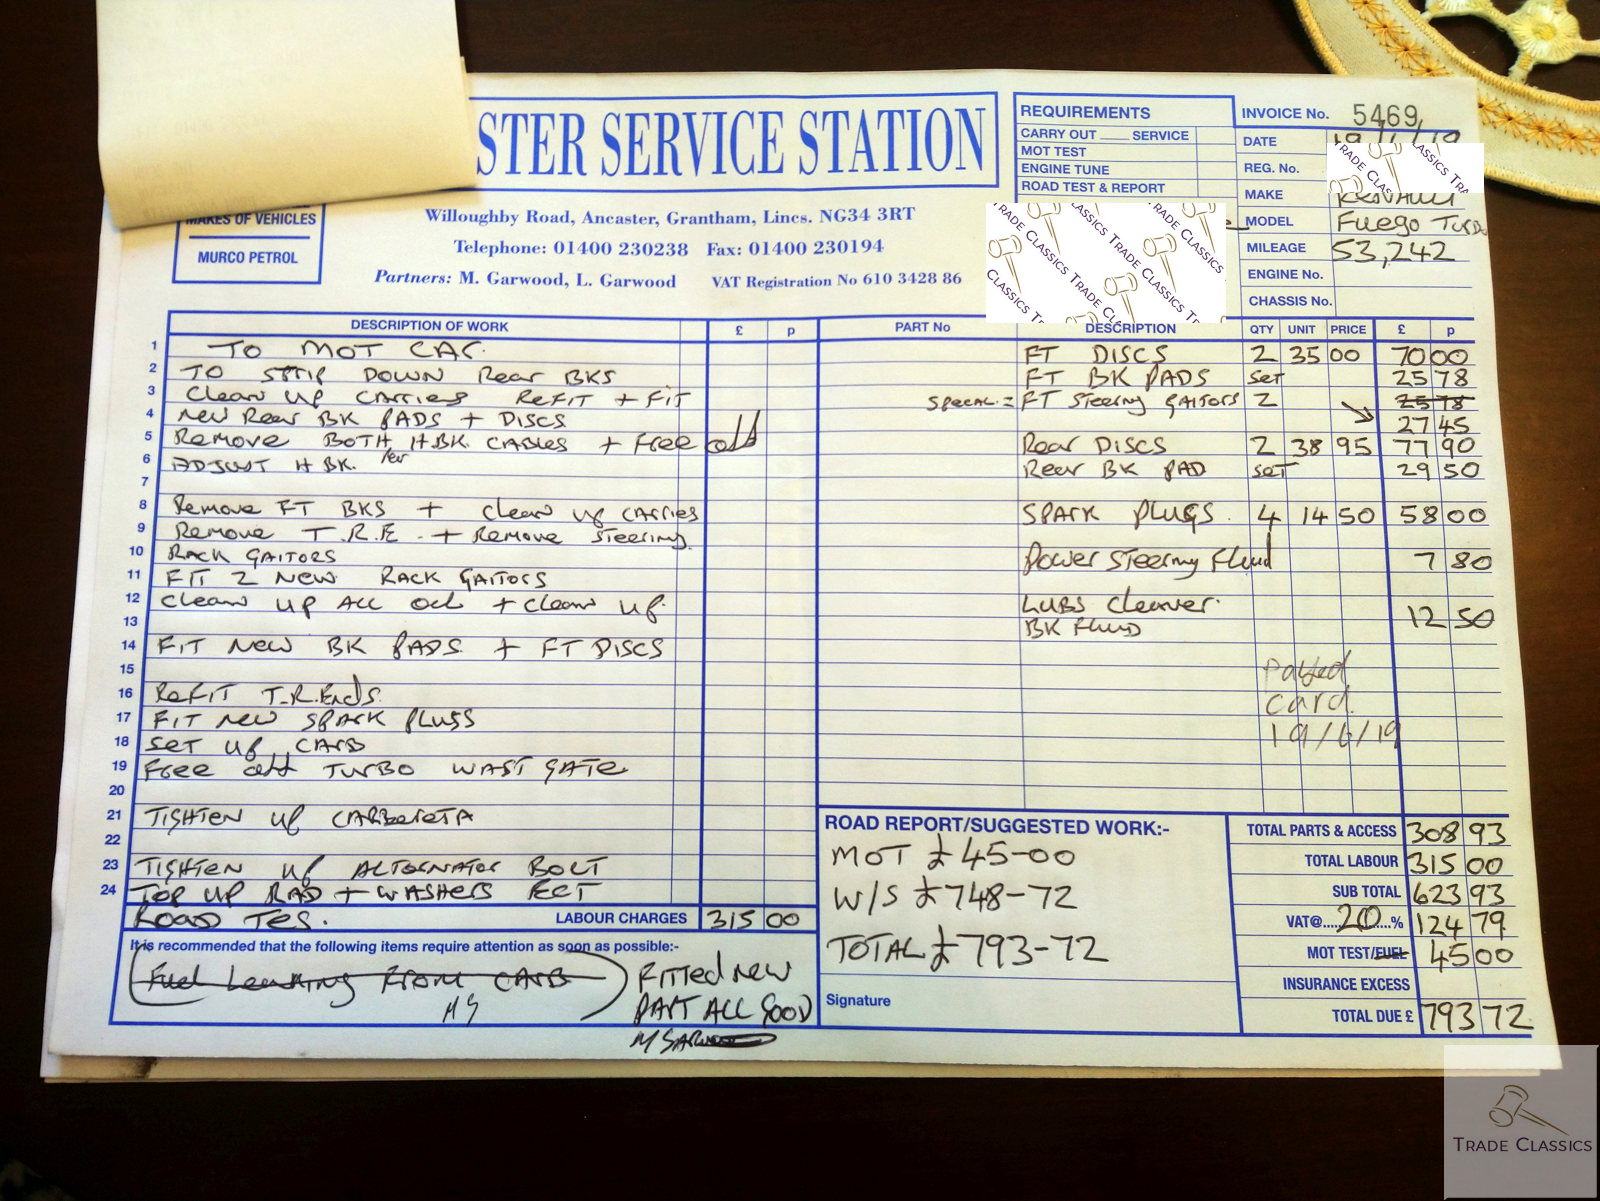 STER SERVICE STATION
MAKES OF VEHICLES
MURCO PETROL
Willoughby Road, Ancaster, Grantham, Lincs. NG34 3RT
Telephone: 01400 230238 Fax: 01400 230194
Partners: M. Garwood, L. Garwood VAT Registration No 610 3428 86
REQUIREMENTS
CARRY OUT ____ SERVICE
MOT TEST
ENGINE TUNE
ROAD TEST & REPORT
INVOICE No. 5469
DATE
REG. No.
MAKE
MODEL Fuego Turbo
MILEAGE 53,242
ENGINE No.
CHASSIS No.
DESCRIPTION OF WORK £ p
1 TO MOT CAR.
2 TO STRIP DOWN Rear BKS
3 Clean up CARRIERS ReFIT + FIT
4 New Rear BK PADS + DISCS
5 Remove BOTH H.BK. CABLES + Free off
6 ADJUST H BK. lever
7
8 Remove FT BKS + clean up CARRIES
9 Remove T.R.E. + Remove Steering
10 RACK GAITORS
11 FIT 2 NEW RACK GAITORS
12 Clean up ALL OIL + Clean up.
13
14 FIT NEW BK PADS + FT DISCS
15
16 ReFIT T.R.Ends.
17 FIT New SPARK PLUGS
18 SET UP CARB
19 Free off TURBO WASTGATE
20
21 TIGHTEN UP CARBERETA
22
23 TIGHTEN UP ALTONATOR BOLT
24 TOP UP RAD + WASHERS ECT
ROAD TES. LABOUR CHARGES 315 00
It is recommended that the following items require attention as soon as possible:-
Fuel Leaking From CARB
MG
FITTED NEW
PART ALL GOOD
M GARWOOD
PART No DESCRIPTION QTY UNIT PRICE £ p
FT DISCS 2 35 00 70 00
FT BK PADS SET 25 78
SPECAL = FT Steering GAITORS 2 25 78
27 45
Rear DISCS 2 38 95 77 90
Rear BK PAD SET 29 50
SPARK PLUGS. 4 14 50 58 00
Power Steering Fluid 7 80
LUBS Cleaner.
BK FLUID 12 50
Payed
Card.
19/6/19
ROAD REPORT/SUGGESTED WORK:-
MOT £45-00
W/S £748-72
TOTAL £793-72
Signature
TOTAL PARTS & ACCESS 308 93
TOTAL LABOUR 315 00
SUB TOTAL 623 93
VAT@....20....% 124 79
MOT TEST/FUEL 45 00
INSURANCE EXCESS
TOTAL DUE £ 793 72
TRADE CLASSICS